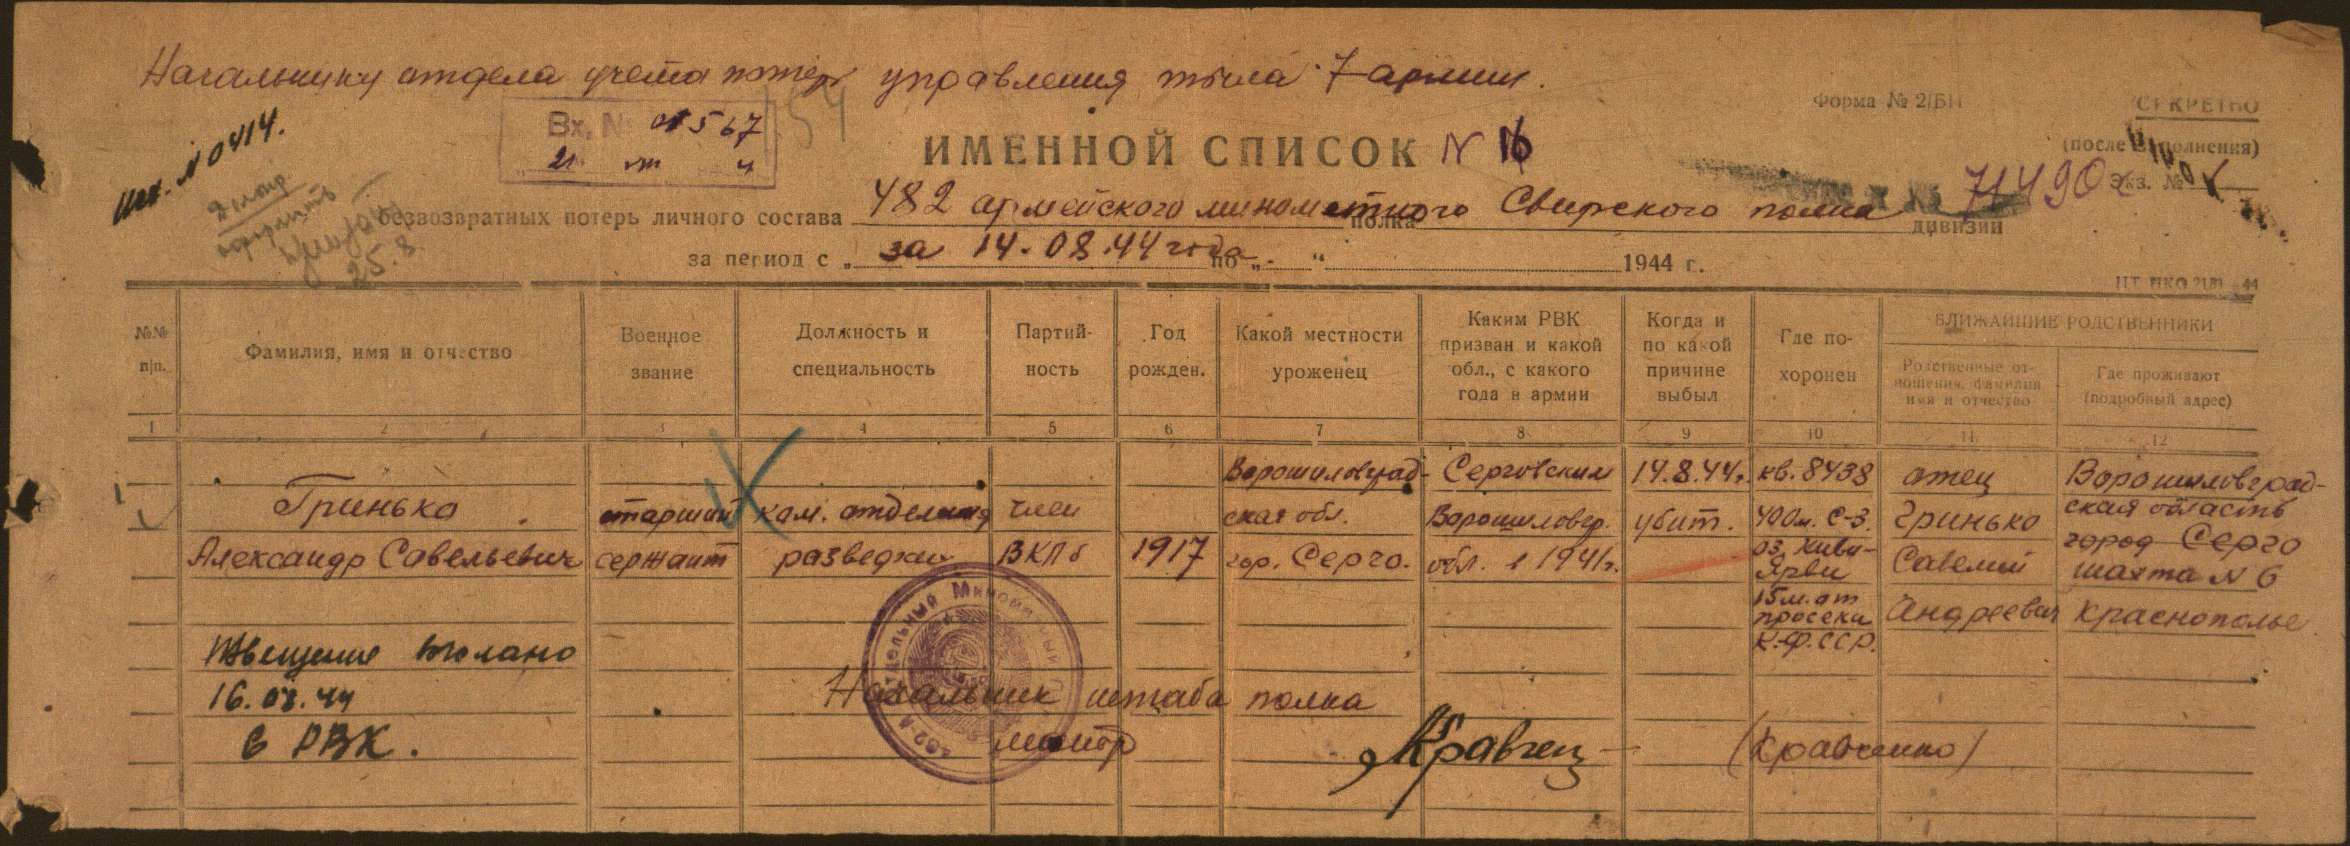 Начальнику отдела учета потерь управления тыла 7 армии.
исх. № 0414.
Вх. № 01567
21
154
Форма № 2/БП
СЕКРЕТНО
(после заполнения)
Экз. №
ИМЕННОЙ СПИСОК N 16
71490
безвозвратных потерь личного состава 482 армейского минометного Свирского полка
полка
дивизии
за период с „ за 14.08.44 года по „ “ 1944 г.
25.8
№№ п/п.
Фамилия, имя и отчество
Военное звание
Должность и специальность
Партий-ность
Год рожден.
Какой местности уроженец
Каким РВК призван и какой обл., с какого года в армии
Когда и по какой причине выбыл
Где по-хоронен
БЛИЖАЙШИЕ РОДСТВЕННИКИ
Родственные от-ношения, фамилия имя и отчество
Где проживают (подробный адрес)
1 2 3 4 5 6 7 8 9 10 11 12
1
Гринько
Александр Савельевич
старший
сержант
ком. отделения
разведки
член
ВКПб
1917
Ворошиловград-
ская обл.
гор. Серго.
Серговским
Ворошиловгр.
обл. в 1941г.
14.8.44г.
убит.
кв. 8438
400м. С-З.
оз. Киви-
Ярви
15м. от
просеки
К-Ф.ССР.
отец
Гринько
Савелий
Андреевич
Ворошиловград-
ская область
город Серго
шахта N 6
Краснополье
Извещение выслано
16.08.44
в РВК.
482-й Отдельный Минометный
Начальник штаба полка
майор
Кравчен (Кравченко)